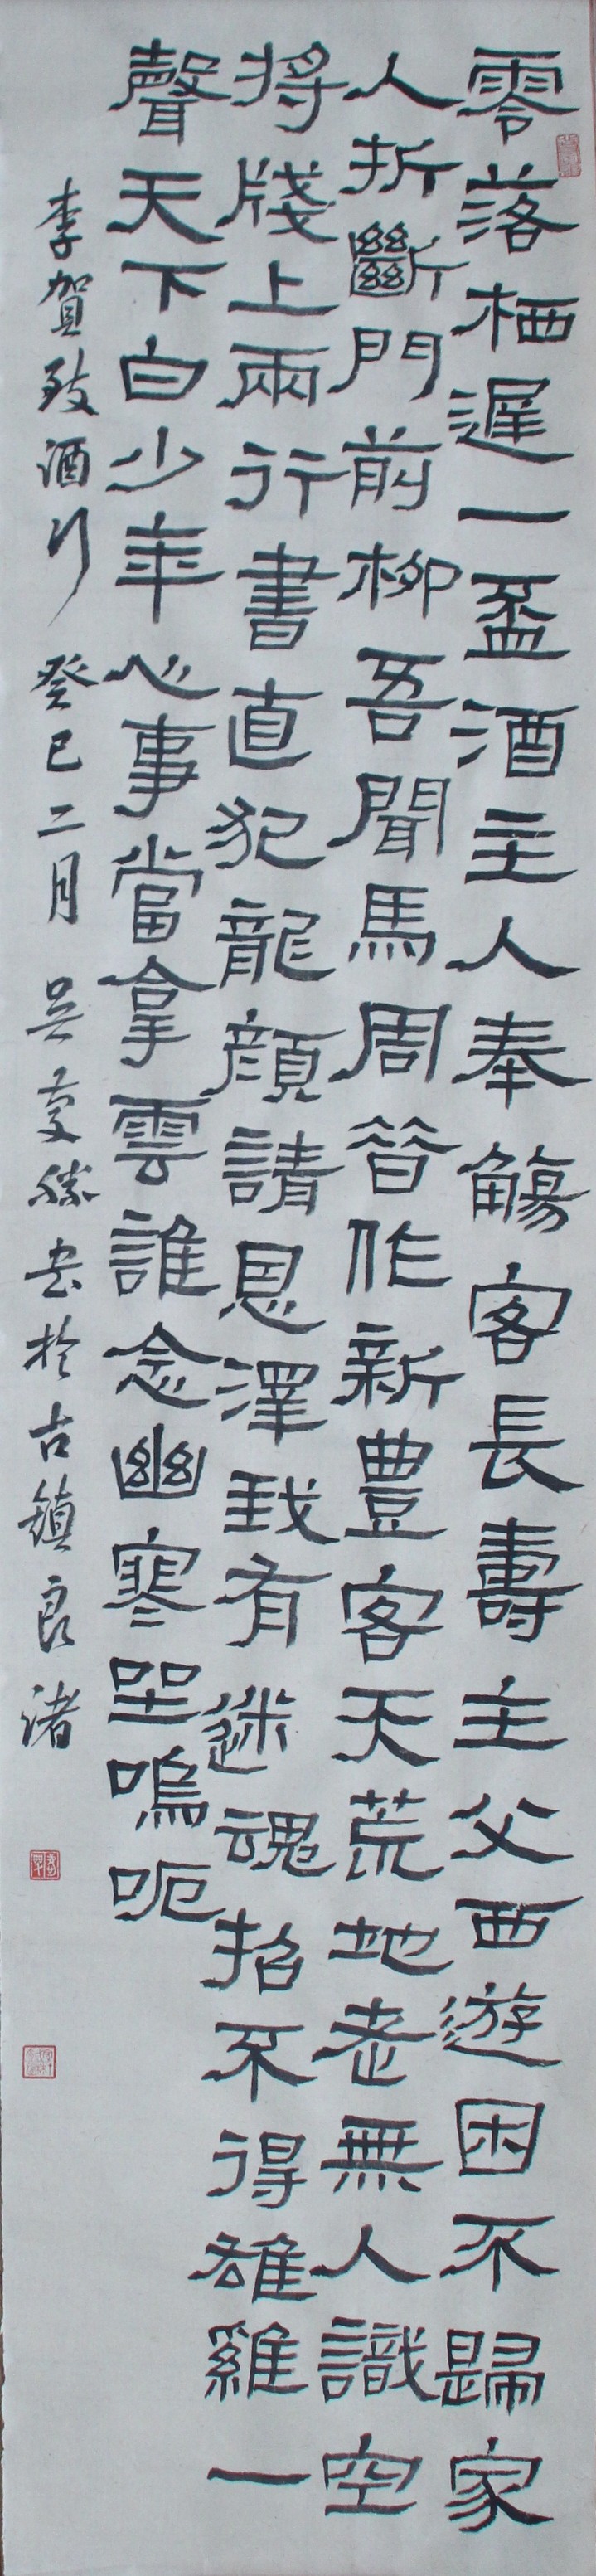 零落栖遲一盃酒主人奉觴客長壽主父西遊困不歸家
人折斷門前柳吾聞馬周昔作新豊客天荒地老無人識空
將牋上兩行書直犯龍顔請恩澤我有迷魂招不得雄雞一
聲天下白少年心事當拿雲誰念幽寒坐嗚呃
李賀致酒行 癸巳二月 吴 书於古鎮良渚